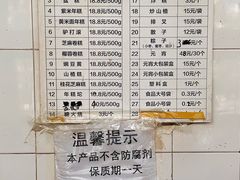 盆糕 18.8元/500g
4 紫米年糕 18.8元/500g 18 炒山楂 15元/袋
5 黄米面年糕 18.8元/500g 19 排叉 15元/袋
6 驴打滚 18.8元/500g 20 散子 15元/袋
7 芝麻卷糕 18.8元/500g 21 粽子
8 椰蓉卷糕 18.8元/500g 22 元宵
9 豌豆黄 18.8元/500g 23 元宵大包装盒 3元/个
10 山楂糕 18.8元/500g 24 元宵小包装盒 2元/个
11 桂花芝麻糕 18.8元/500g 25 塑料盒 1元/个
12 年糕坨 18.8元/500g 26 食品大号袋 0.5元/个
13 18.8元/500g 27 食品小号袋 0.1元/个
14 糖火烧 28
温馨提示
本产品不含防腐剂
保质期一天